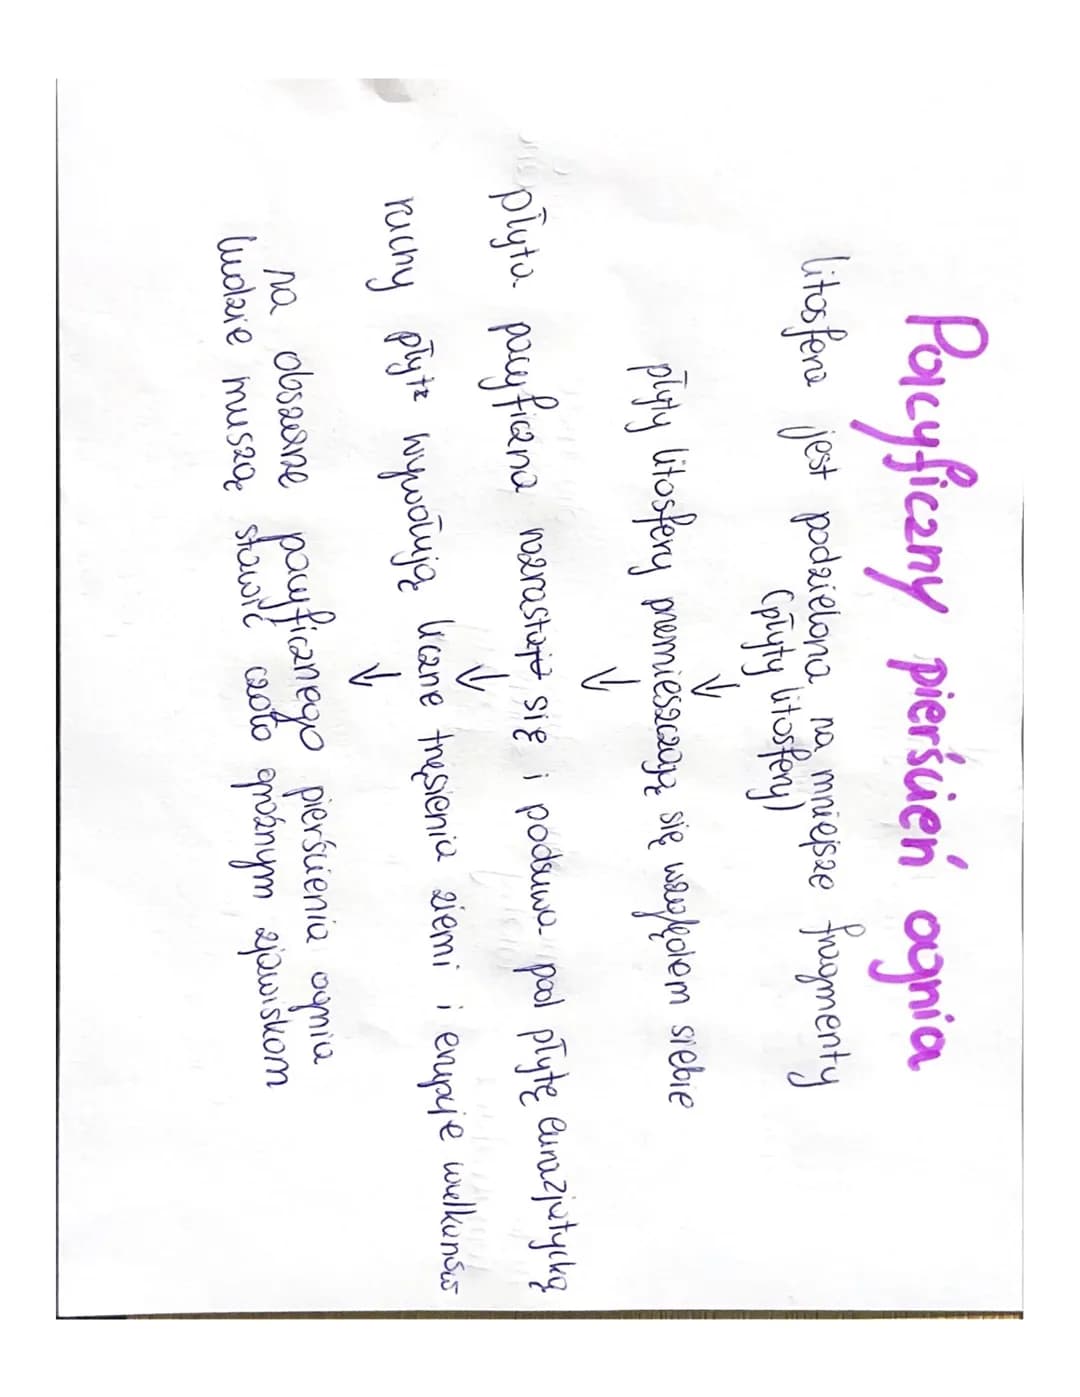 Pacyficzny pierścień ognia
litosfera jest podzielona na mniejsze fragmenty
(płyty litosfery)
↓
płyty litosfery przemieszczają się względem siebie
↓
płyta pacyficzna rozrasta się i podsuwa pod płytę eurazjatycką
↓
ruchy płyt wywołują liczne trzęsienia ziemi i erupcje wulkanów
↓
na obszarze pacyficznego pierścienia ognia
ludzie muszą stawić czoło groźnym zjawiskom